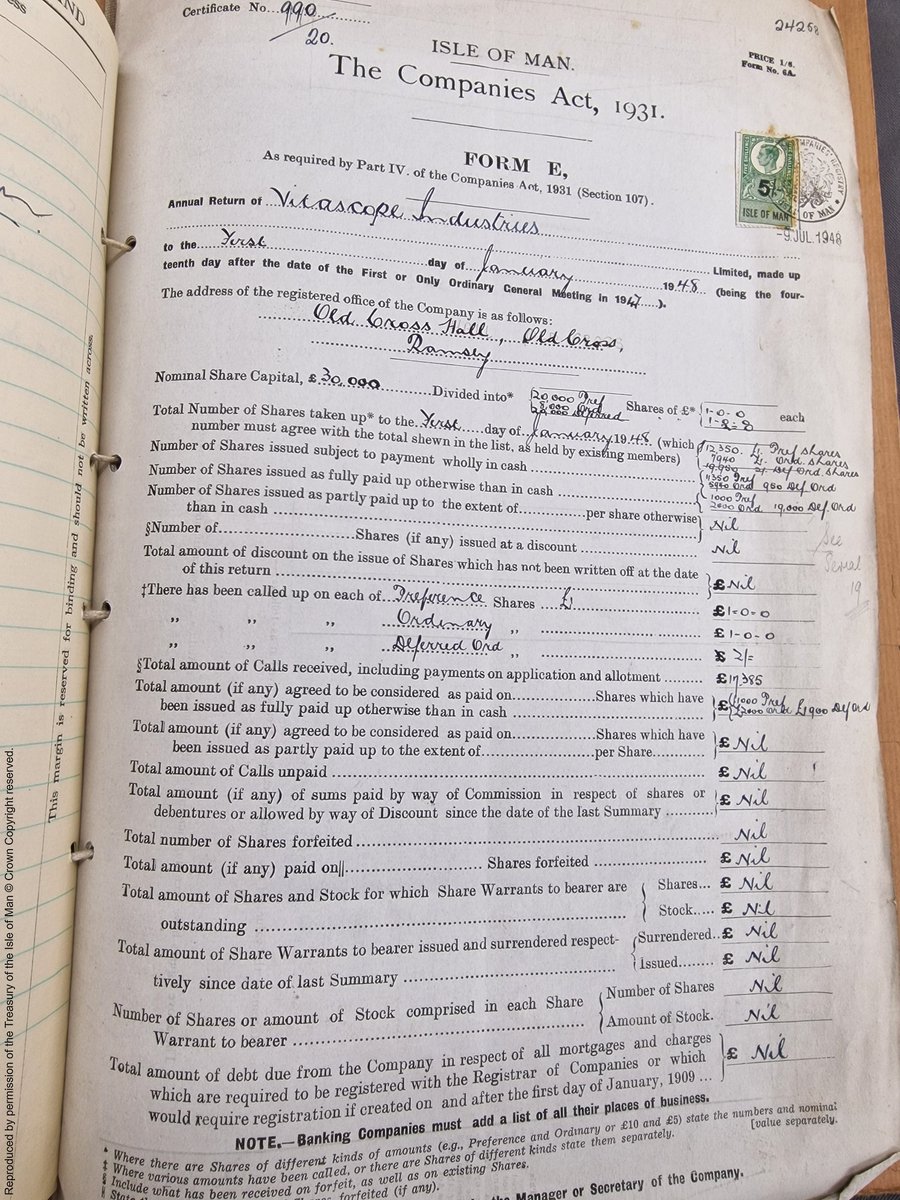 ND
ess
Certificate No. 990
20.
24268
ISLE OF MAN.
PRICE 1/6.
Form No. 6A.
The Companies Act, 1931.
FORM E,
As required by Part IV. of the Companies Act, 1931 (Section 107).
5/-
ISLE OF MAN
COMPANIES REGISTRY
OF MAN
-9 JUL 1948
Annual Return of Vitascope Industries
Limited, made up
to the First day of January 1948 (being the four-
teenth day after the date of the First or Only Ordinary General Meeting in 1947).
The address of the registered office of the Company is as follows:
Old Cross Hall, Old Cross,
Ramsey
Nominal Share Capital, £30,000 Divided into* 20,000 Pref Shares of £* 1-0-0 each
8,000 Ord
Deferred
Total Number of Shares taken up* to the First day of January 1948 (which
number must agree with the total shewn in the list, as held by existing members)
12,350. £1. Pref shares
7940 £1. Ord. shares
19,950 2/- Def Ord. shares
Number of Shares issued subject to payment wholly in cash
11350 Pref
5940 Ord 950 Def Ord
Number of Shares issued as fully paid up otherwise than in cash
1000 Pref
2000 Ord 19,000 Def. Ord
Number of Shares issued as partly paid up to the extent of per share otherwise
than in cash
Nil
§Number of Shares (if any) issued at a discount
Nil
See
19
Total amount of discount on the issue of Shares which has not been written off at the date
of this return £ Nil
‡There has been called up on each of Preference Shares £1 £ 1-0-0
„ „ „ Ordinary „ £ 1-0-0
„ „ „ Deferred Ord „ £ 2/=
§Total amount of Calls received, including payments on application and allotment £17,385
Total amount (if any) agreed to be considered as paid on Shares which have
been issued as fully paid up otherwise than in cash £ £1,000 Pref
£2000 Ord £1900 Def Ord
Total amount (if any) agreed to be considered as paid on Shares which have
been issued as partly paid up to the extent of per Share £ Nil
Total amount of Calls unpaid £ Nil
Total amount (if any) of sums paid by way of Commission in respect of shares or
debentures or allowed by way of Discount since the date of the last Summary £ Nil
Total number of Shares forfeited Nil
Total amount (if any) paid on|| Shares forfeited £ Nil
Total amount of Shares and Stock for which Share Warrants to bearer are Shares... £ Nil
outstanding Stock..... £ Nil
Total amount of Share Warrants to bearer issued and surrendered respect- Surrendered.. £ Nil
tively since date of last Summary Issued........ £ Nil
Number of Shares or amount of Stock comprised in each Share Number of Shares Nil
Warrant to bearer Amount of Stock. Nil
Total amount of debt due from the Company in respect of all mortgages and charges
which are required to be registered with the Registrar of Companies or which
would require registration if created on and after the first day of January, 1909 ... £ Nil
NOTE.—Banking Companies must add a list of all their places of business.
* Where there are Shares of different kinds of amounts (e.g., Preference and Ordinary or £10 and £5) state the numbers and nominal
[value separately.
‡ Where various amounts have been called, or there are Shares of different kinds state them separately.
§ Include what has been received on forfeit, as well as on existing Shares.
forfeited (if any).
Manager or Secretary of the Company.
This margin is reserved for binding and should not be written across.
Reproduced by permission of the Treasury of the Isle of Man © Crown Copyright reserved.